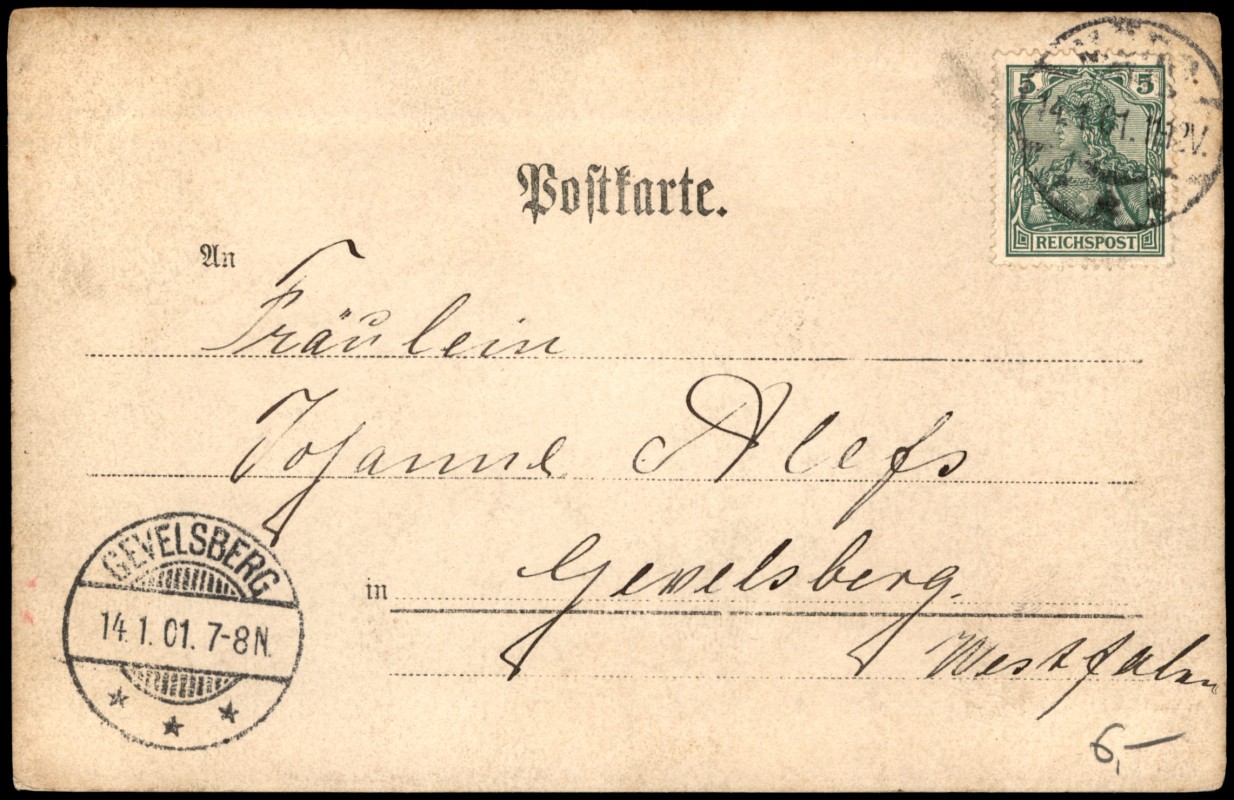 Postkarte.
5 5
14.1.01. 11-12V.
REICHSPOST
An
Fräulein
Johanne Alefs
GEVELSBERG
14.1.01. 7-8N.
in Gevelsberg.
Westfalen
6,-